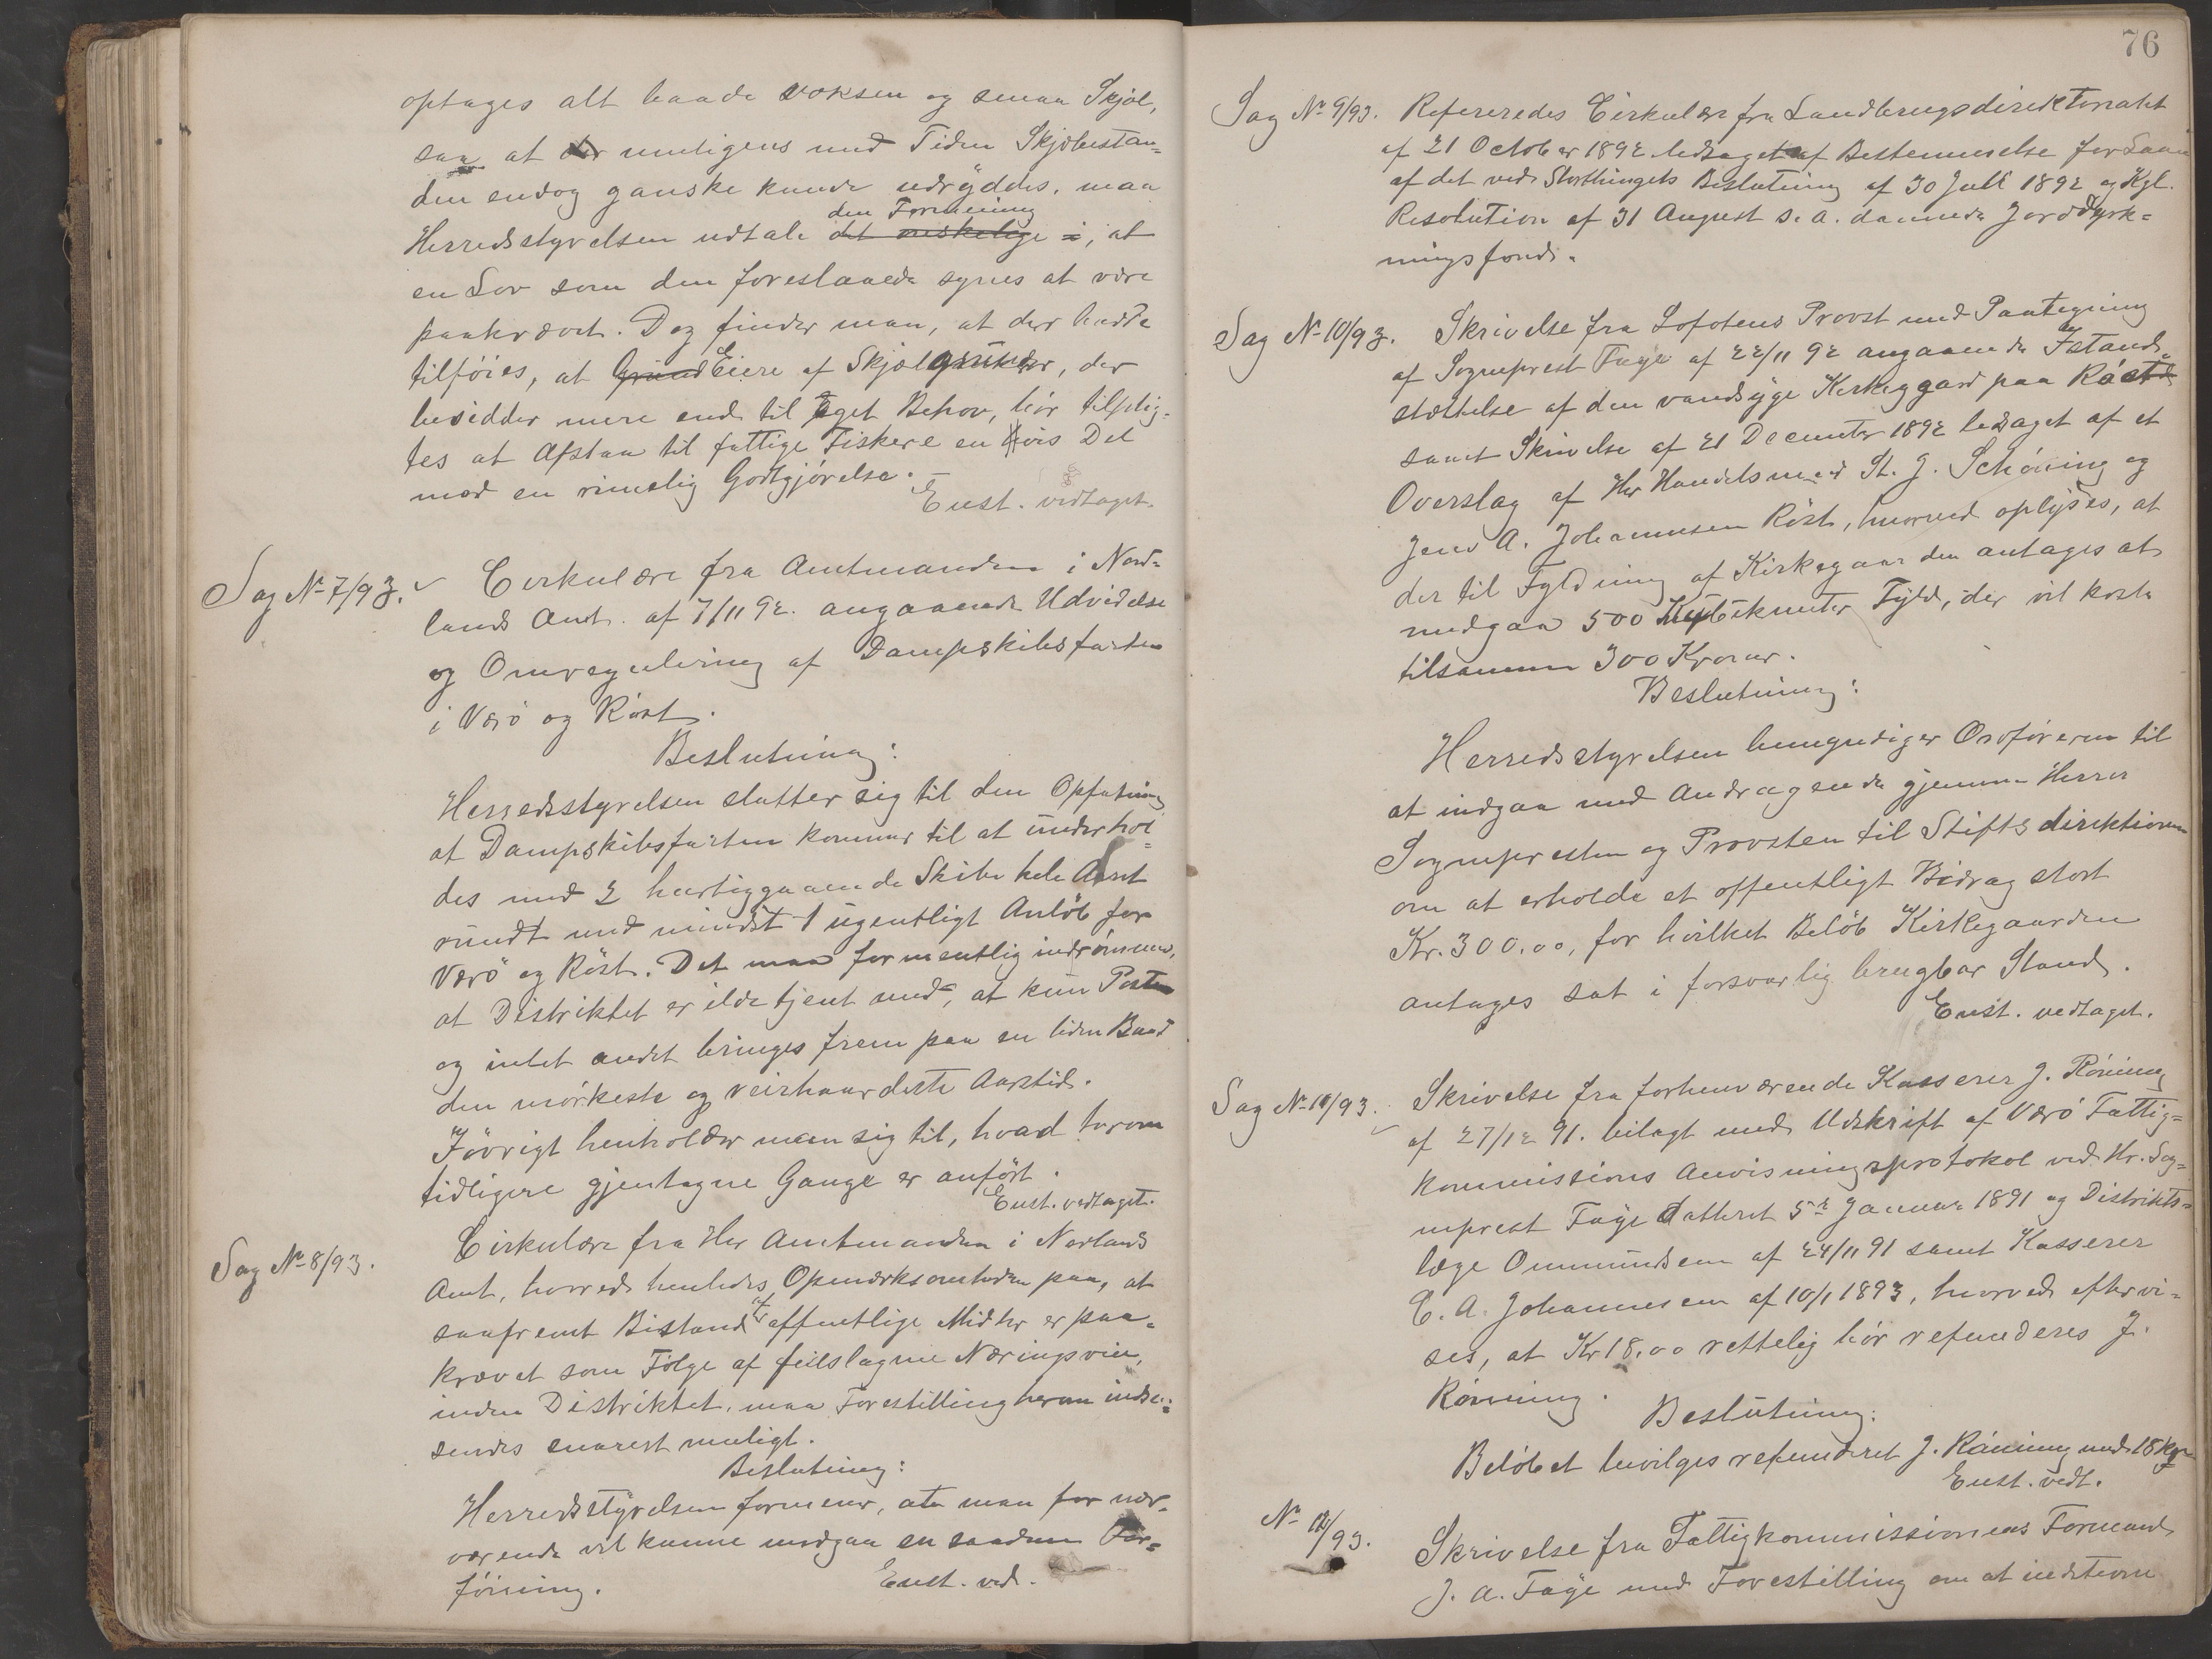 optages alt baade voksen og smaa Skjæl,
saa at der muligens med Tiden Skjælbestan-
den endog ganske kunde udryddes, maa
den Formening
Herredsstyrelsen udtale det ønskelige i, at
en Lov som den foreslaaede synes at være
paakrævet. Dog finder man, at der burde
tilføies, at Grund Eiere af Skjælgrunder, der
besidder mere end til Eget Behov, bör tilplig-
tes at Afstaa til fattige Fiskere en vis Del
mod en rimelig Godtgjörelse. -
Enst. vedtaget.
Sag No 7/93.
Cirkulære fra Amtmanden i Nord-
lands Amt. af 7/11 92. angaaende Udvidelse
og Omregulering af Dampskibsfarten
i Værö og Röst.
Beslutning:
Herredsstyrelsen slutter sig til den Opfatning
at Dampskibsfarten kommer til at underhol-
des med 2 hurtiggaaende Skibe hele Aaret
rundt med mindst 1 ugentligt Anlöb for
Værö og Röst. Det maa formentlig indrömmes,
at Distriktet er ilde tjent med, at kun Posten
og intet andet bringes frem paa en liden Baad
den mörkeste og veirhaardeste Aarstid.
Iövrigt henholder man sig til, hvad herom
tidligere gjentagne Gange er anfört.
Enst. vedtaget.
Sag No 8/93.
Cirkulære fra Hr Amtmanden i Nordlands
Amt, hvorved henledes Opmærksomheden paa, at
saafremt Bistand af offentlige Midler er paa-
krævet som Fölge af feilslagne Næringsveie,
inden Distriktet, maa Forestilling herom ind-
sendes snarest muligt.
Beslutning:
Herredsstyrelsen formener, at man for nær-
værende vil kunne undgaa en saadan For-
föining.
Enst. ved.
76
Sag No 9/93. Refereredes Cirkulære fra Landbrugsdirektoratet
af 21 October 1892 ledsaget af Bestemmelse for Laan
af det ved Storthingets Beslutning af 30 Juli 1892 og Kgl.
Resolution af 31 August s. a. dannede Jorddyrk-
ningsfond.
Sag No 10/93. Skrivelse fra Lofotens Provst med Paategning
af Sogneprest Faye af 22/11 92 angaaende Istand-
sættelse af den vandsyge Kirkegaard paa Röst
samt Skrivelse af 21 December 1892 ledsaget af et
Overslag af Hr Handelsmand St. J. Schöning og
Jens A. Johannesen Röst, hvorved oplyses, at
der til Fyldning af Kirkegaarden antages at
medgaa 500 Kubikmeter Fyld, der vil koste
tilsammen 300 Kroner.
Beslutning:
Herredsstyrelsen bemyndiger Ordföreren til
at indgaa med Andragende gjennem Herrer
Sognepresten og Provsten til Stiftsdirektionen
om at erholde et offentligt Bidrag stort
Kr. 300.00, for hvilket Belöb Kirkegaarden
antages sat i forsvarlig brugbar Stand.
Enst. vedtaget.
Sag No 11/93. Skrivelse fra forhenværende Kasserer J. Röning
af 27/12 91. bilagt med Udskrift af Værö Fattig-
kommissions Anvisningsprotokol ved Hr. Sog-
neprest Faye datteret 5te Januar 1891 og Distrikts-
læge Ommundsen af 24/11 91 samt Kasserer
C. A. Johannesen af 10/1 1893, hvorved eftervi-
ses, at Kr 18.00 rettelig bör refunderes J.
Rönning.
Beslutning:
Belöbet bevilges refunderet J. Rönning med 18 Kr
Enst. vedt.
No 12/93.
Skrivelse fra Fattigkommissionens Formand
J. A. Faye med Forestilling om at